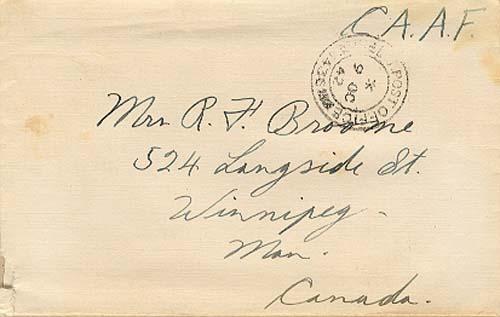 C.A.A.F.
FIELD POST OFFICE
9 OC
42
Mrs R. F. Broome
524 Langside St.
Winnipeg.
Man.
Canada.